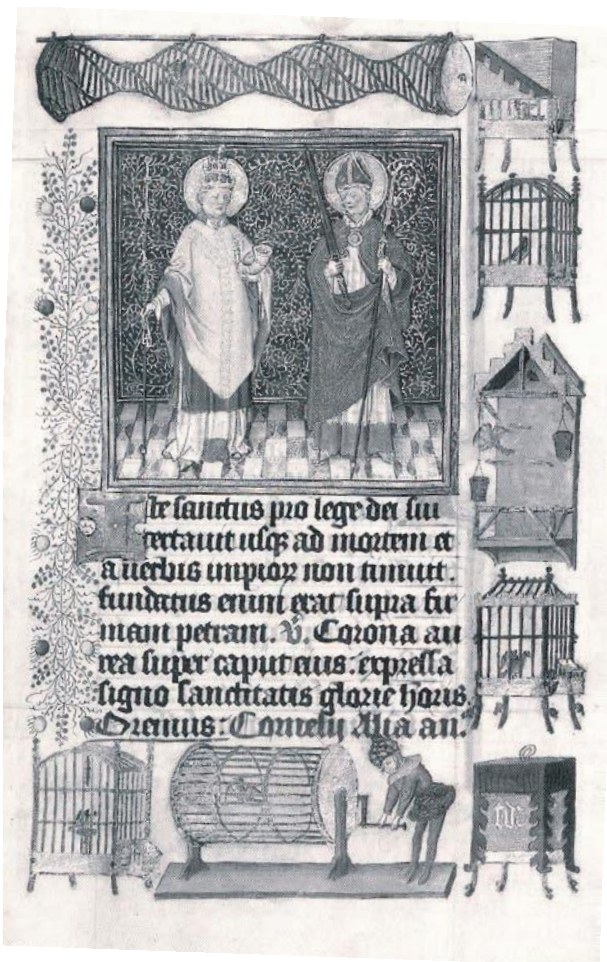 Iste sanctus pro lege dei sui
certauit usqꝫ ad mortem et
a uerbis impioꝝ non timuit.
fundatus enim erat supra fir
mam petram. ℣. Corona au
rea super caput eius: expressa
signo sanctitatis glorie horis.
Oremus: Cornelij Alia an.